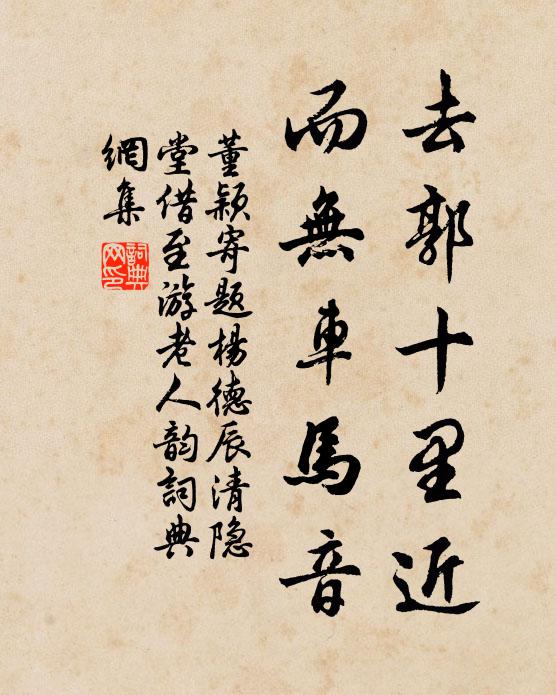 去郭十里近
而無車馬音
董颖寄题楊德辰清隐
堂借至游老人韵詞典
網集
詞典網印